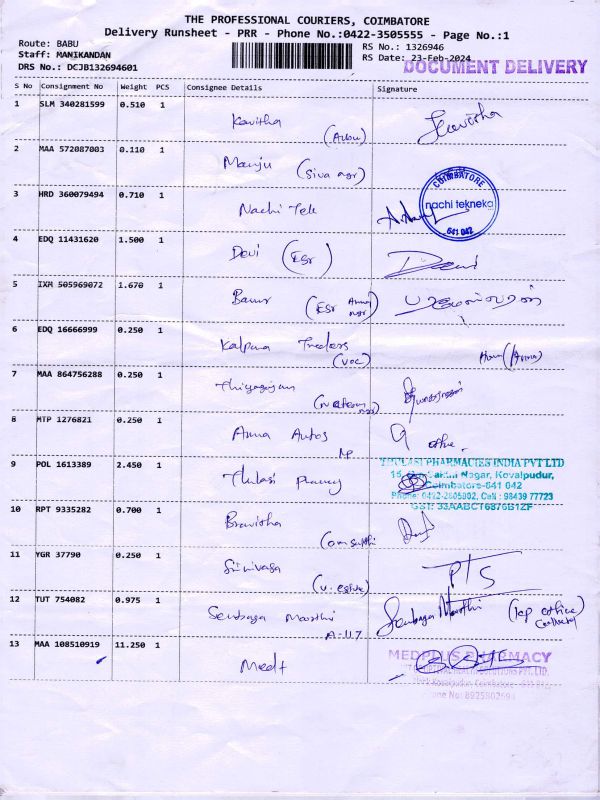 THE PROFESSIONAL COURIERS, COIMBATORE
Delivery Runsheet - PRR - Phone No.:0422-3505555 - Page No.:1
Route: BABU
RS No.: 1326946
Staff: MANIKANDAN
RS Date: 23-Feb-2024
DRS No.: DCJB132694601
DOCUMENT DELIVERY
S No Consignment No Weight PCS Consignee Details Signature
1 SLM 340281599 0.510 1 Kavitha Kavitha
2 MAA 572087003 0.110 1 Manju
(Siva ngr)
COIMBATORE
3 HRD 360079494 0.710 1 Nachi Tek nachi tekneka
641 042
4 EDQ 11431620 1.500 1 Devi (ESI) Devi
5 IXM 505969072 1.670 1
(ESI Anna ngr)
6 EDQ 16666999 0.250 1 Kalpana Traders
(VOC) (Anna)
7 MAA 864756288 0.250 1 Thiyagarajan
8 MTP 1276821 0.250 1 Anna Autos office
9 POL 1613389 2.450 1 Thulasi
THULASI PHARMACIES INDIA PVT LTD
Nagar, Kovaipudur,
Coimbatore-641 042
Phone: 0422-2605802, Cell : 98439 77723
GST: 33AABCT6876B1ZF
10 RPT 9335282 0.700 1
(om sakthi
11 YGR 37790 0.250 1 Srinivasa PTS
12 TUT 754082 0.975 1 Senbaga Moorthi Senbaga Moorthi office)
13 MAA 108510919 11.250 1 Med+
MEDPLUS PHARMACY